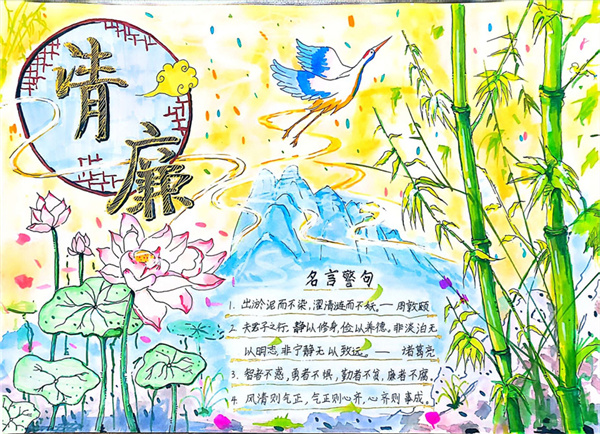 清
廉
名言警句
1. 出淤泥而不染,濯清涟而不妖。——周敦颐
2. 夫君子之行,静以修身,俭以养德。非淡泊无
以明志,非宁静无以致远。——诸葛亮
3. 智者不惑,勇者不惧,勤者不贫,廉者不腐。
4. 风清则气正,气正则心齐,心齐则事成。